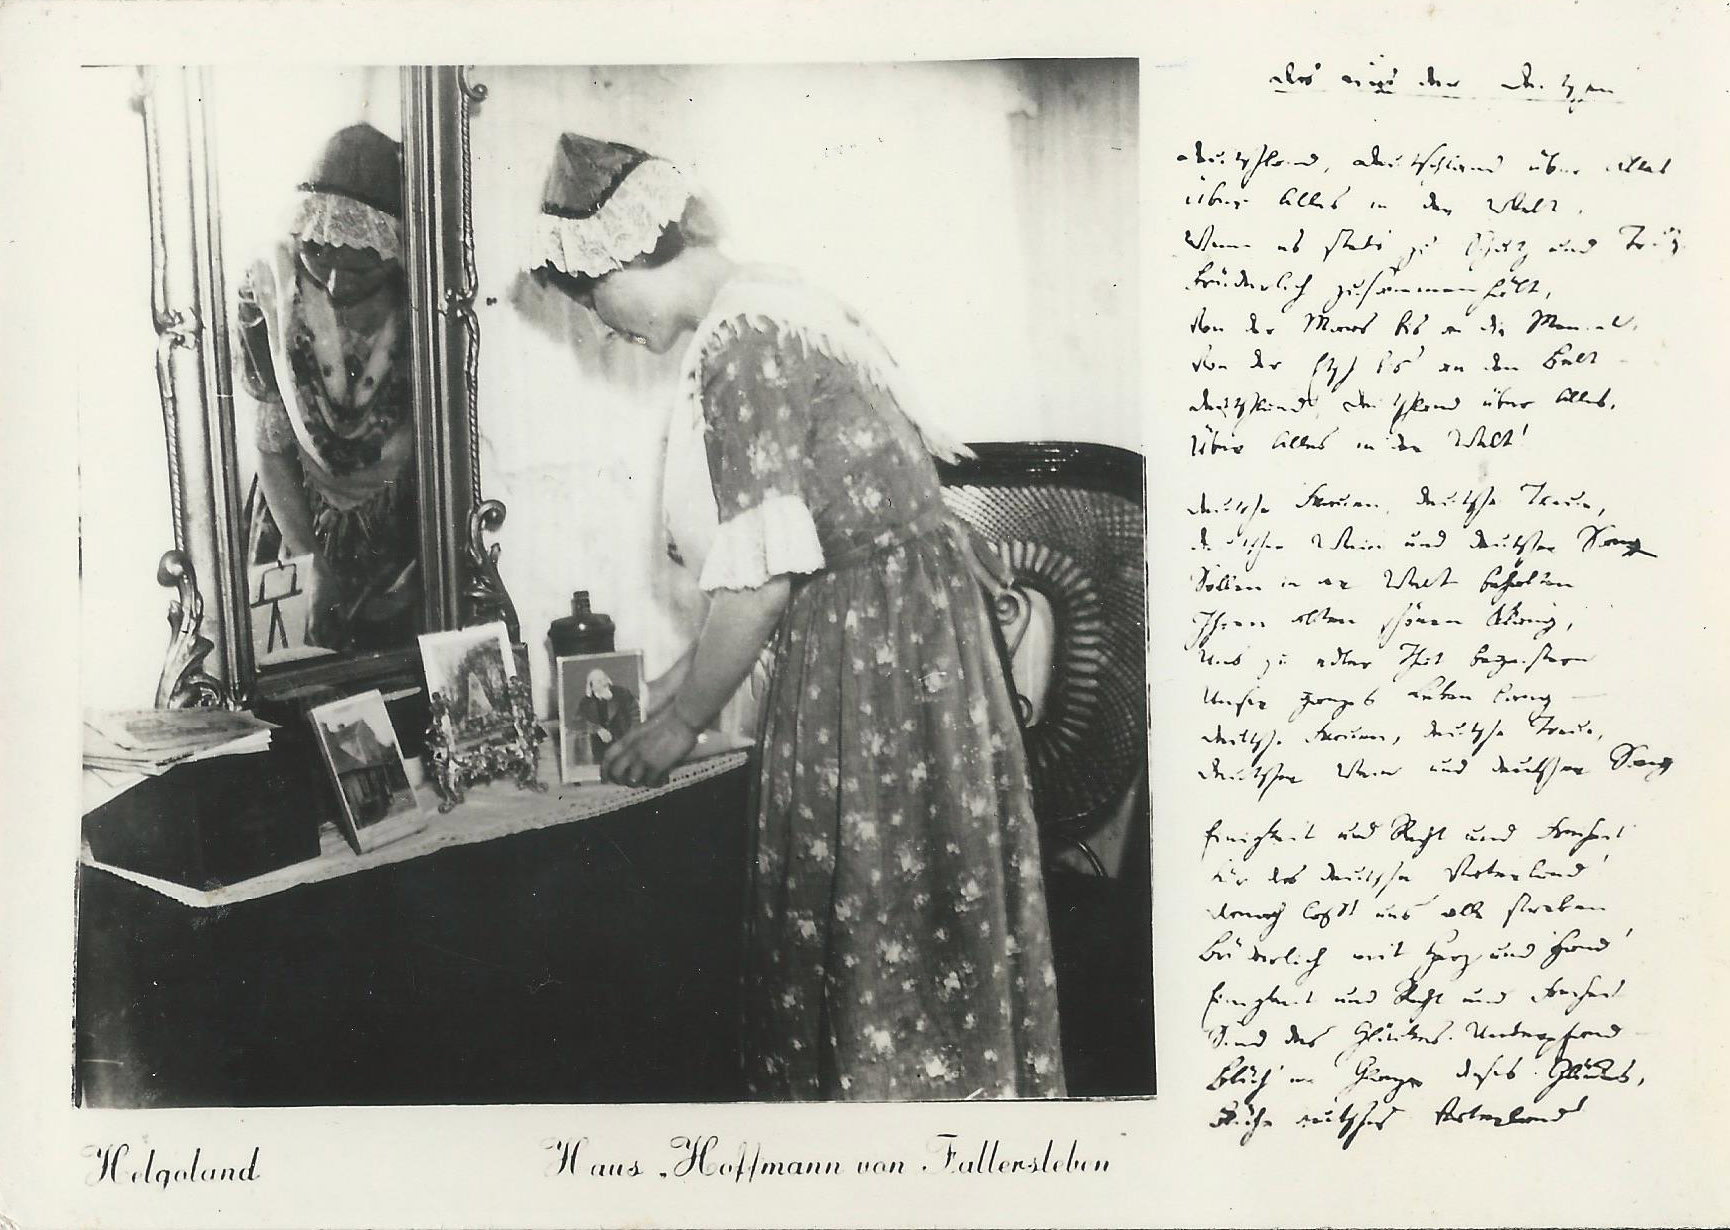 Das Lied der Deutschen
Deutschland, Deutschland über Alles
Über Alles in der Welt,
Wenn es stets zu Schutz und Trutz
Brüderlich zusammenhält,
Von der Maas bis an die Memel,
Von der Etsch bis an den Belt –
Deutschland, Deutschland über Alles,
Über Alles in der Welt!
Deutsche Frauen, deutsche Treue,
Deutscher Wein und deutscher Sang
Sollen in der Welt behalten
Ihren alten schönen Klang,
Uns zu edler That begeistern
Unser ganzes Leben lang –
Deutsche Frauen, deutsche Treue,
Deutscher Wein und deutscher Sang
Einigkeit und Recht und Freiheit
Für das deutsche Vaterland!
Danach laßt uns alle streben
Brüderlich mit Herz und Hand!
Einigkeit und Recht und Freiheit
Sind des Glückes Unterpfand –
Blüh' im Glanze dieses Glückes,
Blühe deutsches Vaterland!
Helgoland
Haus „Hoffmann von Fallersleben